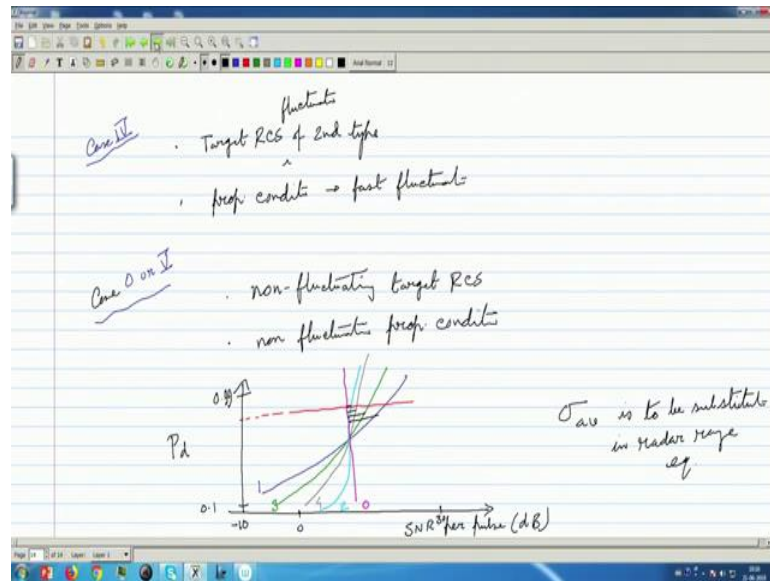 File Edit View Page Tools Options Help
Arial Normal 12
Case IV
fluctuatio
. Target RCS of 2nd type
^
. prop conditi → fast fluctuati
Case 0 or V
. non-fluctuating target RCS
. non fluctuatin prop. conditi
0.99
Pd
0.1
1 3 4 2 0
-10 0 30
SNR per pulse (dB)
σave is to be substitut
in radar range
eq.
Page 14 of 14 Layer: Layer 1